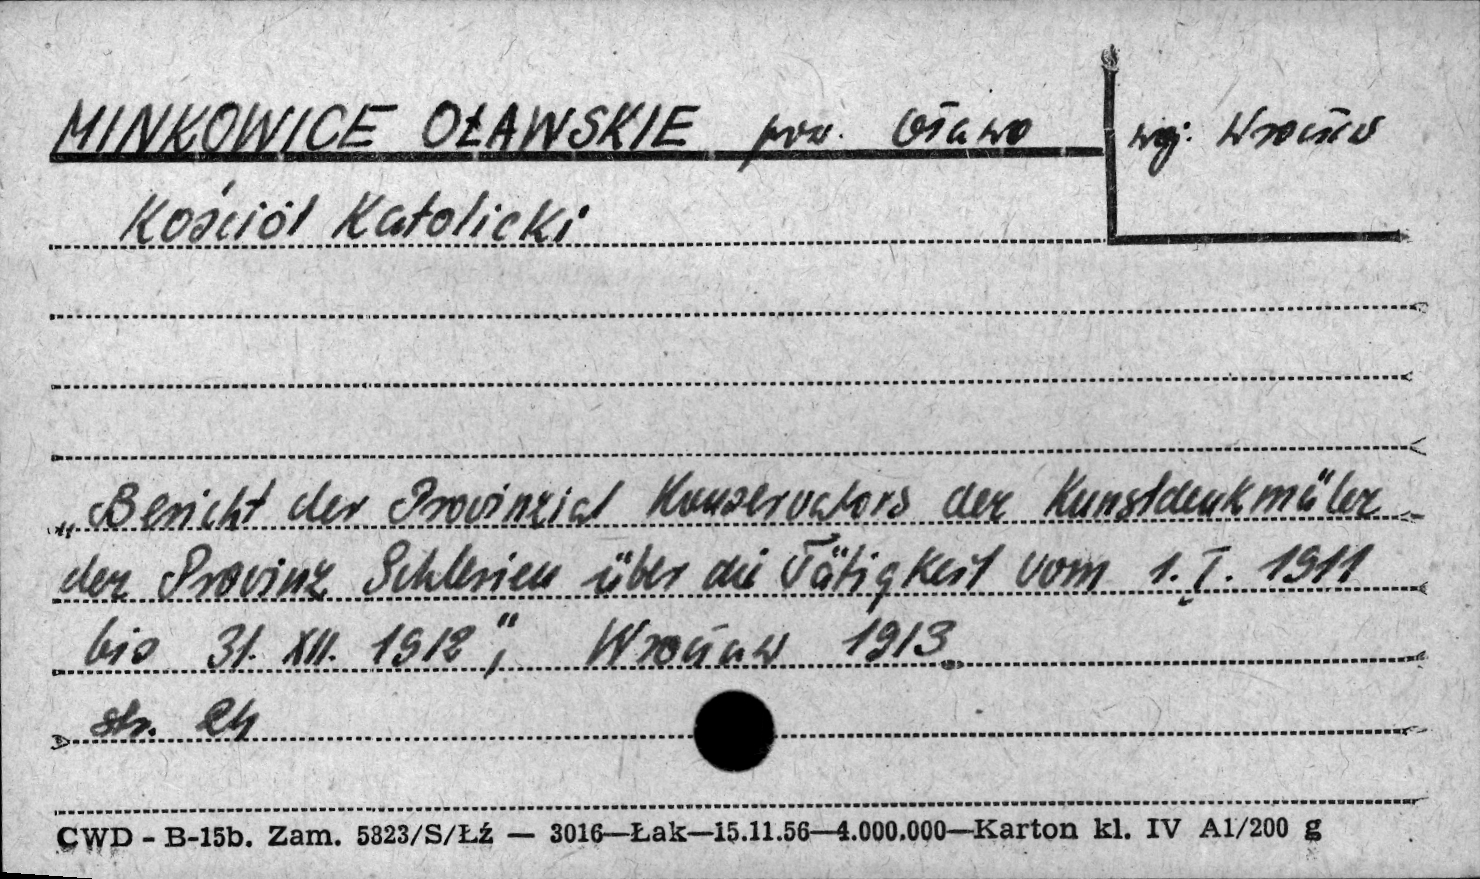 MINKOWICE OŁAWSKIE pow. Oława woj. Wrocław
Kościół Katolicki
„Bericht der Provinzial Konservators der Kunstdenkmäler
der Provinz Schlesien über die Tätigkeit vom 1. I. 1911
bis 31. XII. 1912", Wrocław 1913
str. 24
CWD - B-15b. Zam. 5823/S/Łź — 3016—Łak—15.11.56—4.000.000—Karton kl. IV A1/200 g